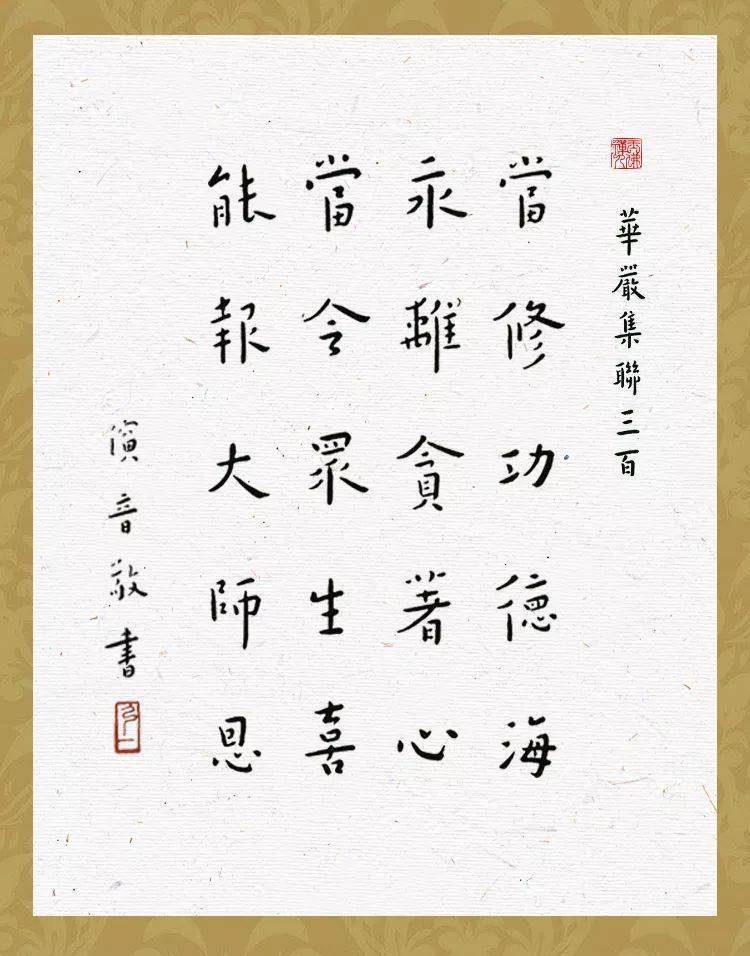 華嚴集聯三百
當修功德海
永離貪著心
當令眾生喜
能報大師恩
演音敬書
弘一